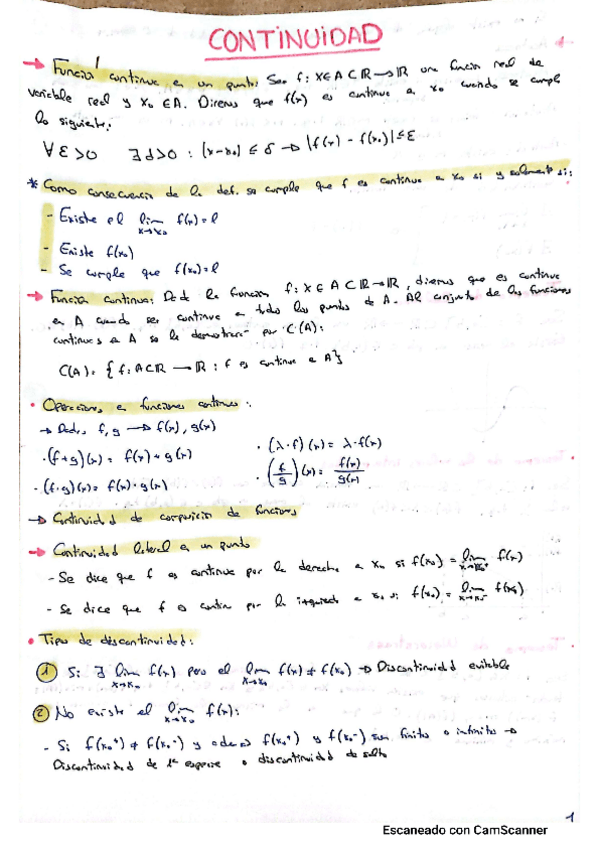 CONTINUIDAD
→ Función continua en un punto: Sea f: X∈A⊂ℝ→ℝ una función real de
variable real y x₀ ∈A. Diremos que f(x) es continua en x₀ cuando se cumple
lo siguiente:
∀ε>0 ∃δ>0 : |x-x₀| ≤ δ → |f(x) - f(x₀)| ≤ ε
* Como consecuencia de la def. se cumple que f es continua en x₀ si y solamente si:
- Existe el lim x→x₀ f(x)=l
- Existe f(x₀)
- Se cumple que f(x₀)=l
→ Función continua: Dada la función f: X∈A⊂ℝ→ℝ, diremos que es continua
en A cuando sea continua en todos los puntos de A. Al conjunto de las funciones
continuas en A se le denotará por C(A):
C(A)= { f: A⊂ℝ → ℝ : f es continua en A }
• Operaciones en funciones continuas:
→ Dados f, g → f(x), g(x)
· (f+g)(x) = f(x)+g(x) · (λ·f)(x) = λ·f(x)
· (f·g)(x) = f(x)·g(x) · (f/g)(x) = f(x)/g(x)
→ Continuidad de composición de funciones
→ Continuidad lateral en un punto
- Se dice que f es continua por la derecha en x₀ si f(x₀) = lim x→x₀⁺ f(x)
- Se dice que f es contin por la izquierda en x₀ si f(x₀) = lim x→x₀⁻ f(x)
• Tipos de discontinuidad:
① Si ∃ lim x→x₀ f(x) pero el lim x→x₀ f(x) ≠ f(x₀) → Discontinuidad evitable
② No existe el lim x→x₀ f(x):
- Si f(x₀⁺) ≠ f(x₀⁻) y además f(x₀⁺) y f(x₀⁻) son finitos o infinitos →
Discontinuidad de 1ª especie o discontinuidad de salto
1
Escaneado con CamScanner